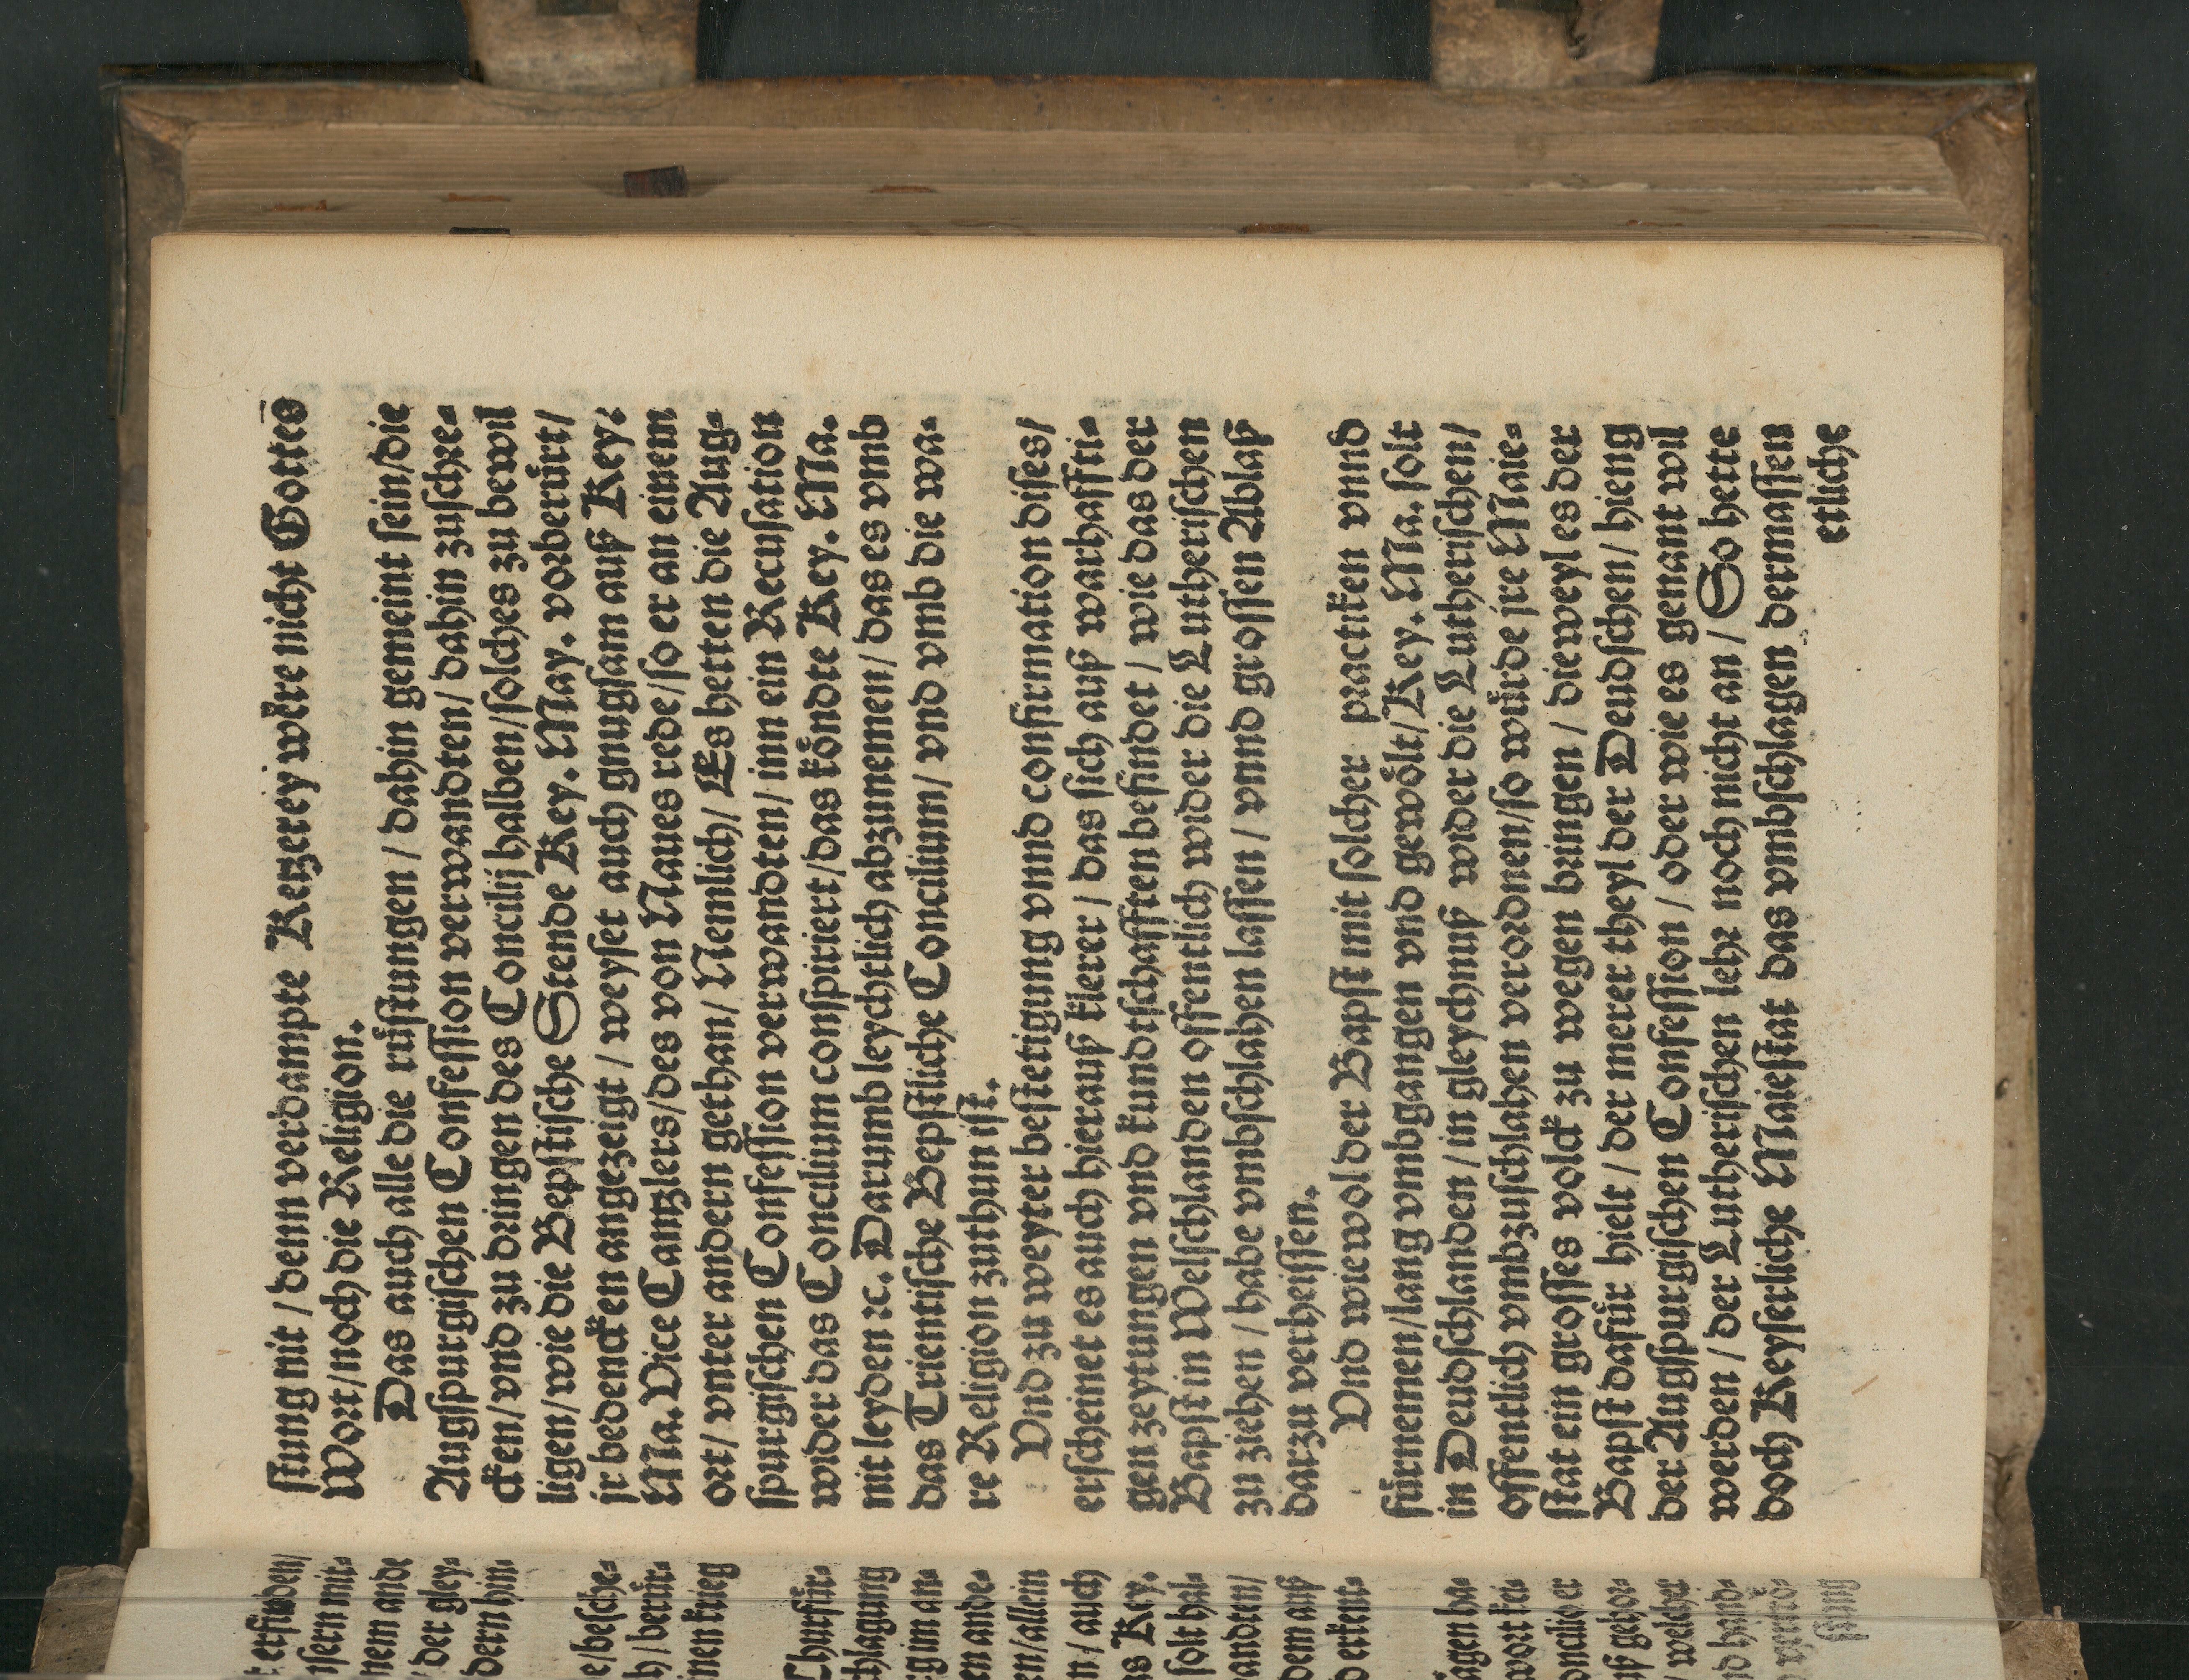 stung nit / denn verdampte Ketzerey wêre nicht Gottes
Wort / noch die Religion.
Das auch alle die rüstungen / dahin gemeint sein / die
Augspurgischen Confession verwandten / dahin zuschre-
cken / vnd zu dringen des Concilij halben / solches zu bewil
ligen / wie die Bepstische Stende Key. May. vorberürt /
jr bedencken angezeigt / weyset auch gnugsam auß Key.
Ma. Vice Cantzlers / des von Naues rede / so er an einem
ort / vnter andern gethan / Nemlich / Es hetten die Aug-
spurgischen Confession verwandten / inn ein Recusation
wider das Concilium conspiriert / das köndte Key. Ma.
nit leyden ꝛc. Darumb leychtlich abzunemen / das es vmb
das Trientische Bepstliche Concilium / vnd vmb die wa-
re Religion zuthun ist.
Vnd zu weyter bestetigung vnnd confirmation dises /
erscheinet es auch hierauß klerer / das sich auß warhaffti-
gen zeytungen vnd kundtschafften befindet / wie das der
Bapst in Welschlanden offentlich wider die Lutherischen
zu ziehen / habe vmbschlahen lassen / vnnd grossen Ablaß
darzu verheissen.
Vnd wiewol der Bapst mit solcher practiken vnnd
fürnemen / lang vmbgangen vnd gewölt / Key. Ma. solt
in Deudschlanden / in gleychnuß wider die Lutherischen /
offentlich vmbzuschlahen verordnen / so würde jre Maie-
stat ein grosses volck zu wegen bringen / dieweyl es der
Bapst dafür hielt / der merer theyl der Deudschen / hieng
der Augspurgischen Confession / oder wie es genant wil
werden / der Lutherischen lehr noch nicht an / So hette
doch Keyserliche Maiestat das vmbschlagen dermassen
etliche